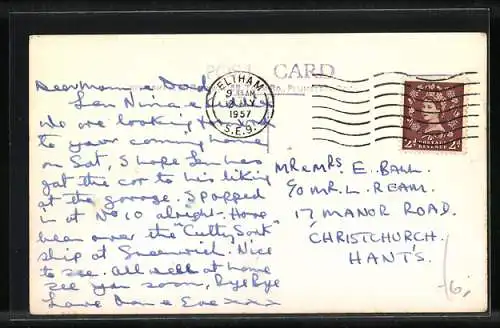 POST CARD
ELTHAM
JLY
1957
S.E.9.
POSTAGE
REVENUE
2d 2d
Dear Mom & Dad
Len Nina &
We are looking forward
to your coming home
on Sat, I hope Len has
got the car to his liking
at the garage. I popped
in at No 10 alright. Have
been over the "Cutty Sark"
ship at Greenwich. Nice
to see. All well at home
see you soon, Bye Bye
Love Don & Eve xxx
MR & MRS E. BALL
C/O MR. L. REAM.
17 MANOR ROAD.
CHRISTCHURCH.
HANT'S.